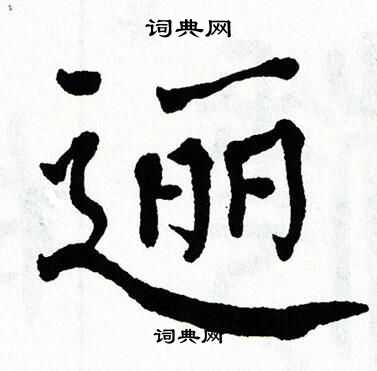 词典网
逦
词典网